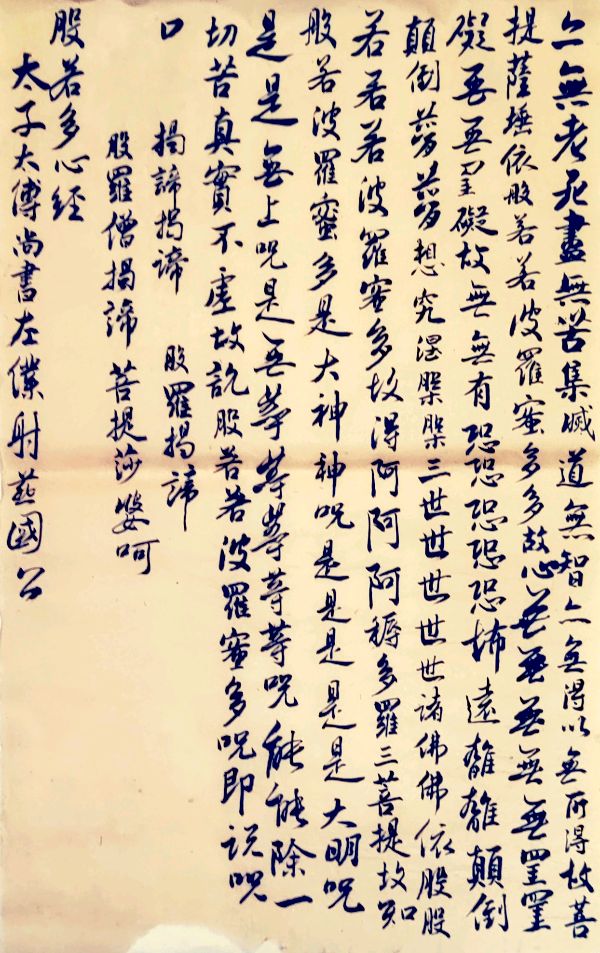 亦無老死盡無苦集滅道無智亦無得以無所得故菩
提薩埵依般若若波羅蜜多多故心無無無無無罣罣
礙無無罣礙故無無有恐恐恐恐恐怖遠離離顛倒
顛倒夢夢想究涅槃槃三世世世世世諸佛佛依般般
若若若波羅蜜多故得阿阿阿耨多羅三菩提故知
般若波羅蜜多是大神神咒是是是是是大明咒
是是無上咒是無等等等等等咒能能除一
切苦真實不虛故說般若若波羅蜜多咒即說咒
曰 揭諦揭諦 般羅揭諦
般羅僧揭諦 菩提莎婆呵
般若多心經
太子太傅尚書左僕射燕國公